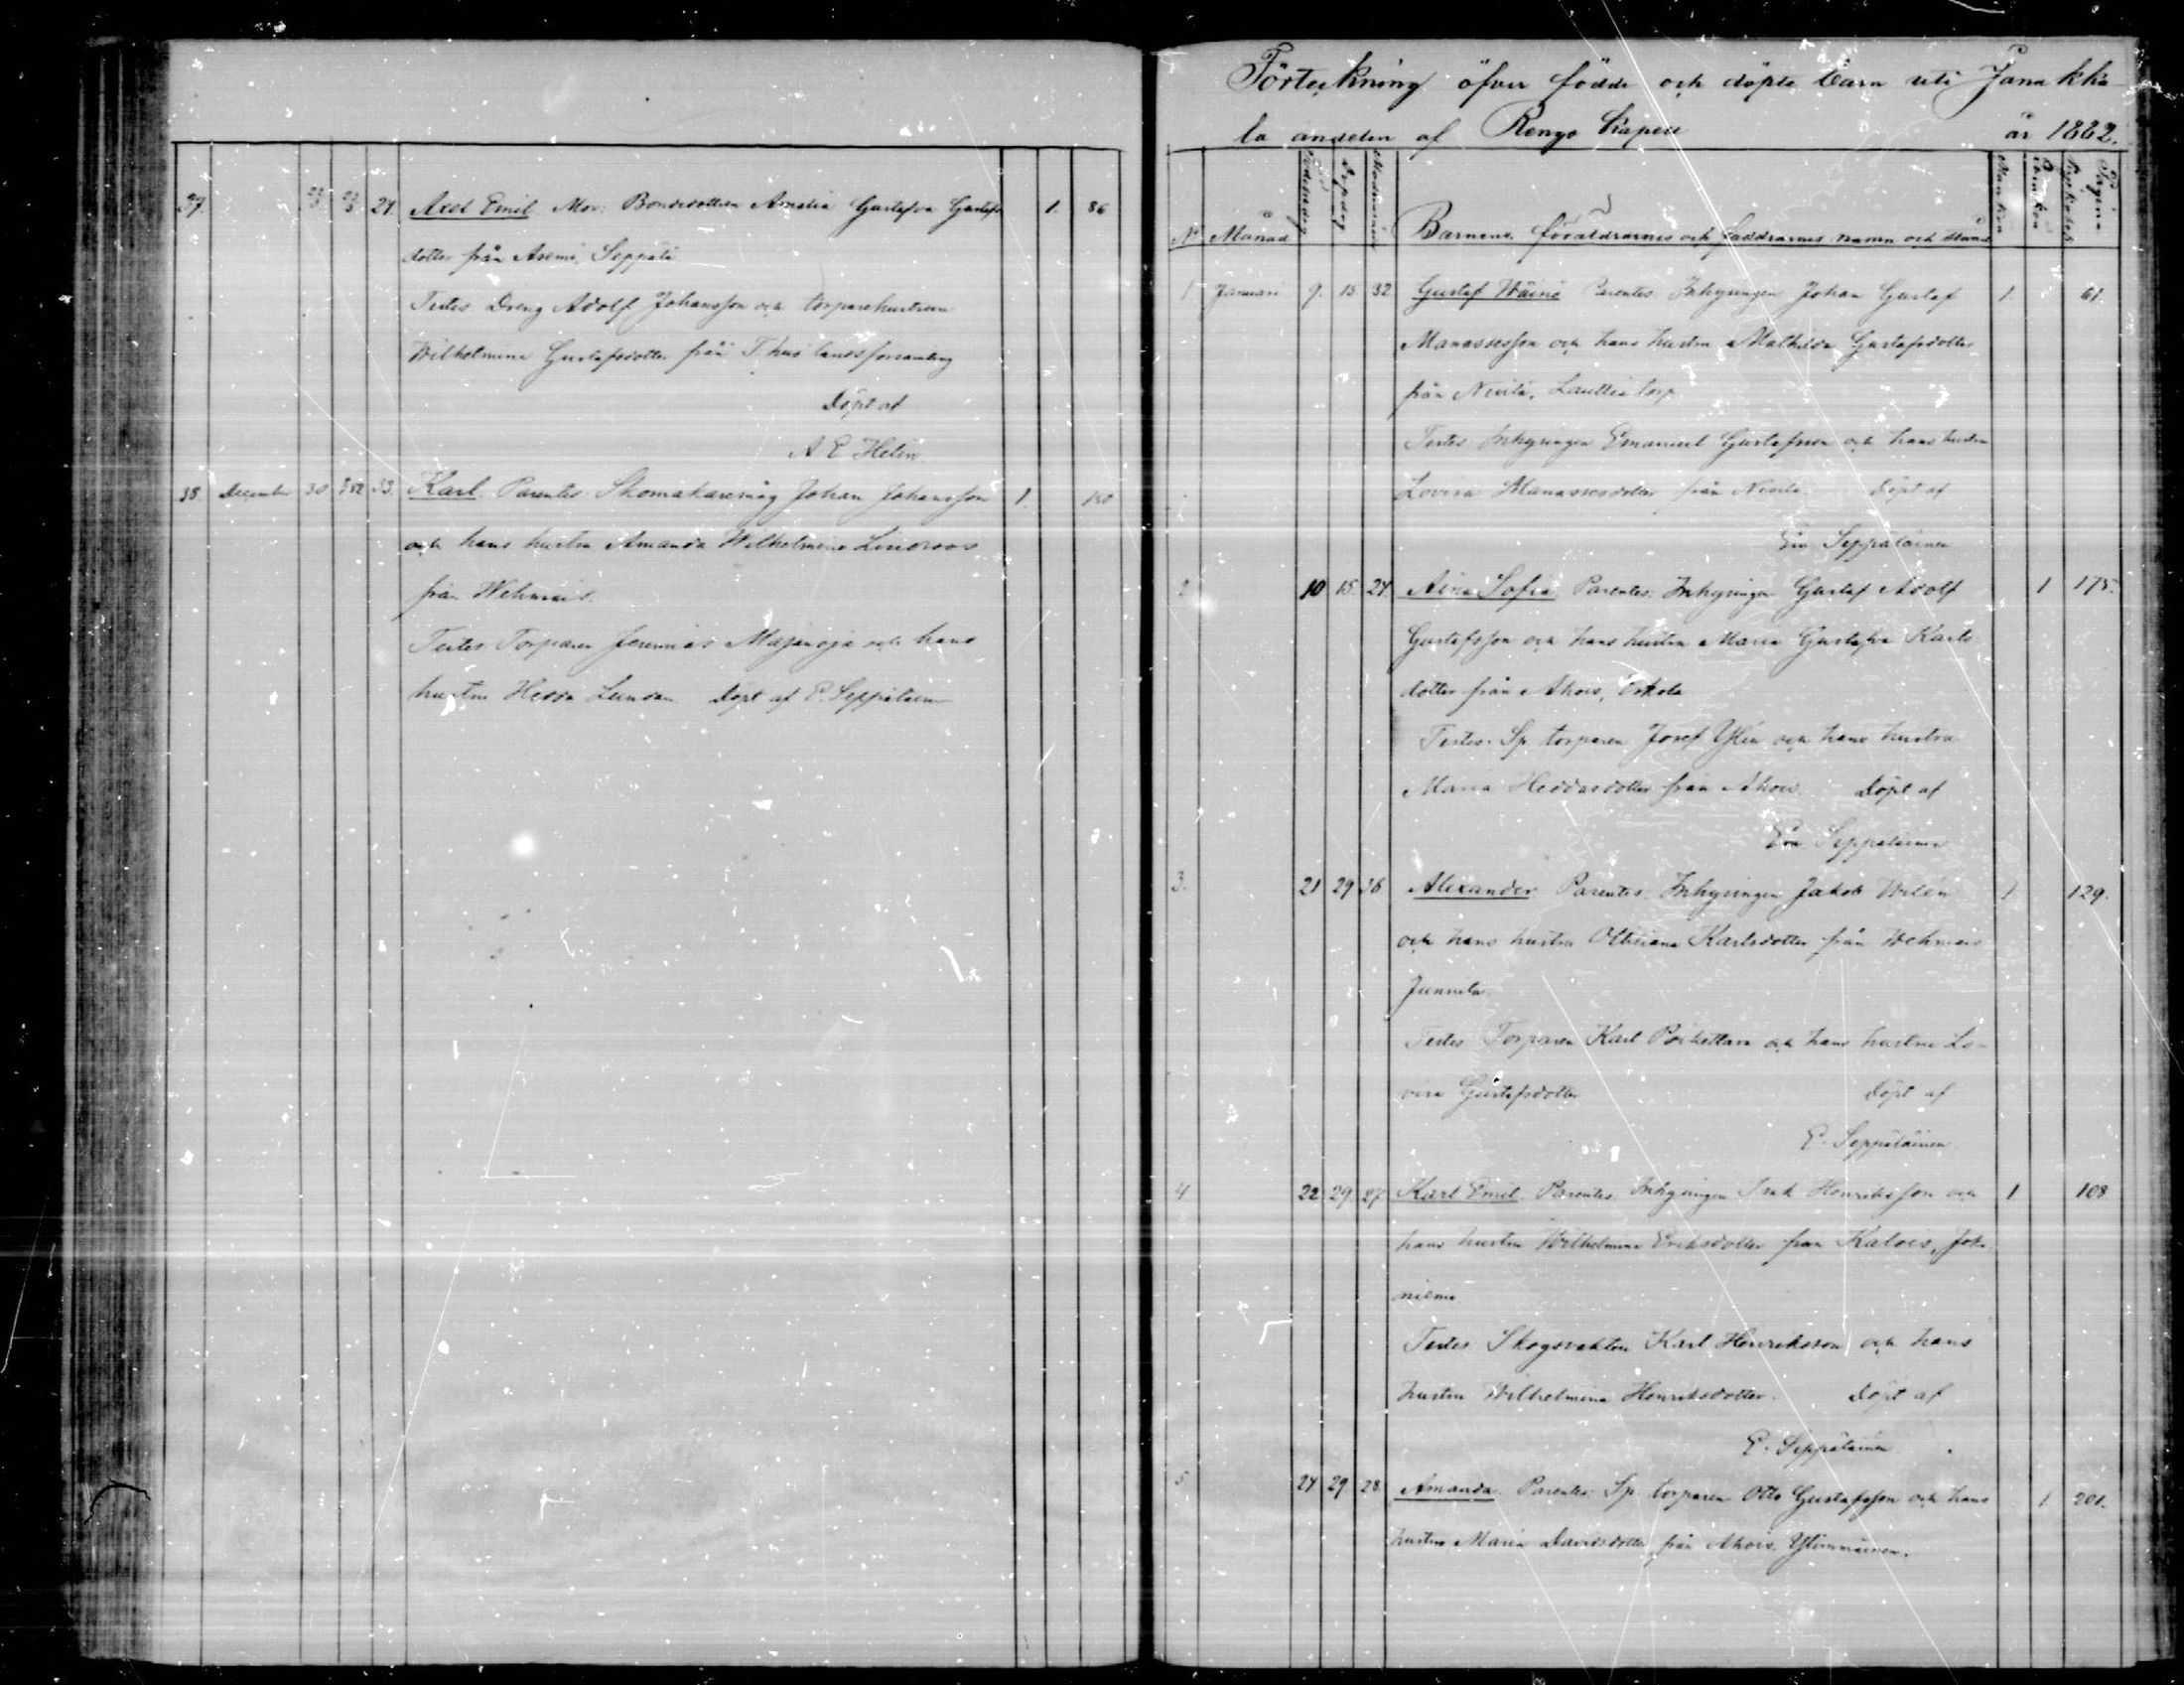 37. 23/3 29/3 21. Axel Emil Mor: Bondedottren Amalia Gustafva Gustafs 1. 86
dotter från Asemi, Seppälä
Testes Dreng Adolf Johansson och torparehustrun
Wilhelmina Gustafsdotter från T:hus landsförsamling
Döpt af
A E Helin
38. December 30 33. Karl. Parentes: Skomakaremåg Johan Johansson 1.
och hans hustru Amanda Wilhelmina Lindroos
från Wehmais.
Testes: Torparen Jeremias Majanoja och hans
hustru Hedda Lundan Döpt af E. Seppäläinen
Förteckning öfver födde och döpte barn uti Janakka-
la andelen af Rengo Kapell år 1882.
No Månad Födelsedag Dopdag Barnens, föräldrarnes och faddrarnes namn och stånd Mankön Qvinkön Kyrkobok Pagina
1 Januari 9. 15 32 Gustaf Wäinö Parentes: Inhysingen Johan Gustaf 1. 61.
Manassesson och hans hustru Mathilda Gustafsdotter
från Nevilä, torp
Testes: Inhysingen Emanuel Gustafsson och hans hustru
Lovisa Manassesdotter från Nevilä. Döpt af
Seppäläinen
2 10 15. 24 Aina Sofia Parentes: Inhysingen Gustaf Adolf 1 175.
Gustafsson och hans hustru Maria Gustafva Karls
dotter från Ahois, Eskola
Testes: Sp. torparen Josef och hans hustru
Maria Heddasdotter från Ahois. Döpt af
Seppäläinen
3. 21 29 36 Alexander Parentes: Inhysingen Jakob Wilén 1 129.
och hans hustru Ottiliana Karlsdotter från Wehmais
Junnila.
Testes Torparen Karl och hans hustru Lo-
visa Gustafsdotter Döpt af
E. Seppäläinen
4 22 29 27 Karl Emil. Parentes Inhysingen Henriksson och 1 108
hans hustru Wilhelmina Eriksdotter från Kalois, Joki
niemi.
Testes Skogsvakten Karl Henriksson och hans
hustru Wilhelmina Henriksdotter. Döpt af
E. Seppäläinen
5 24 29 28. Amanda. Parentes: Sp. torparen Otto Gustafsson och hans 1 201.
hustru Maria Davidsdotter från Ahois,